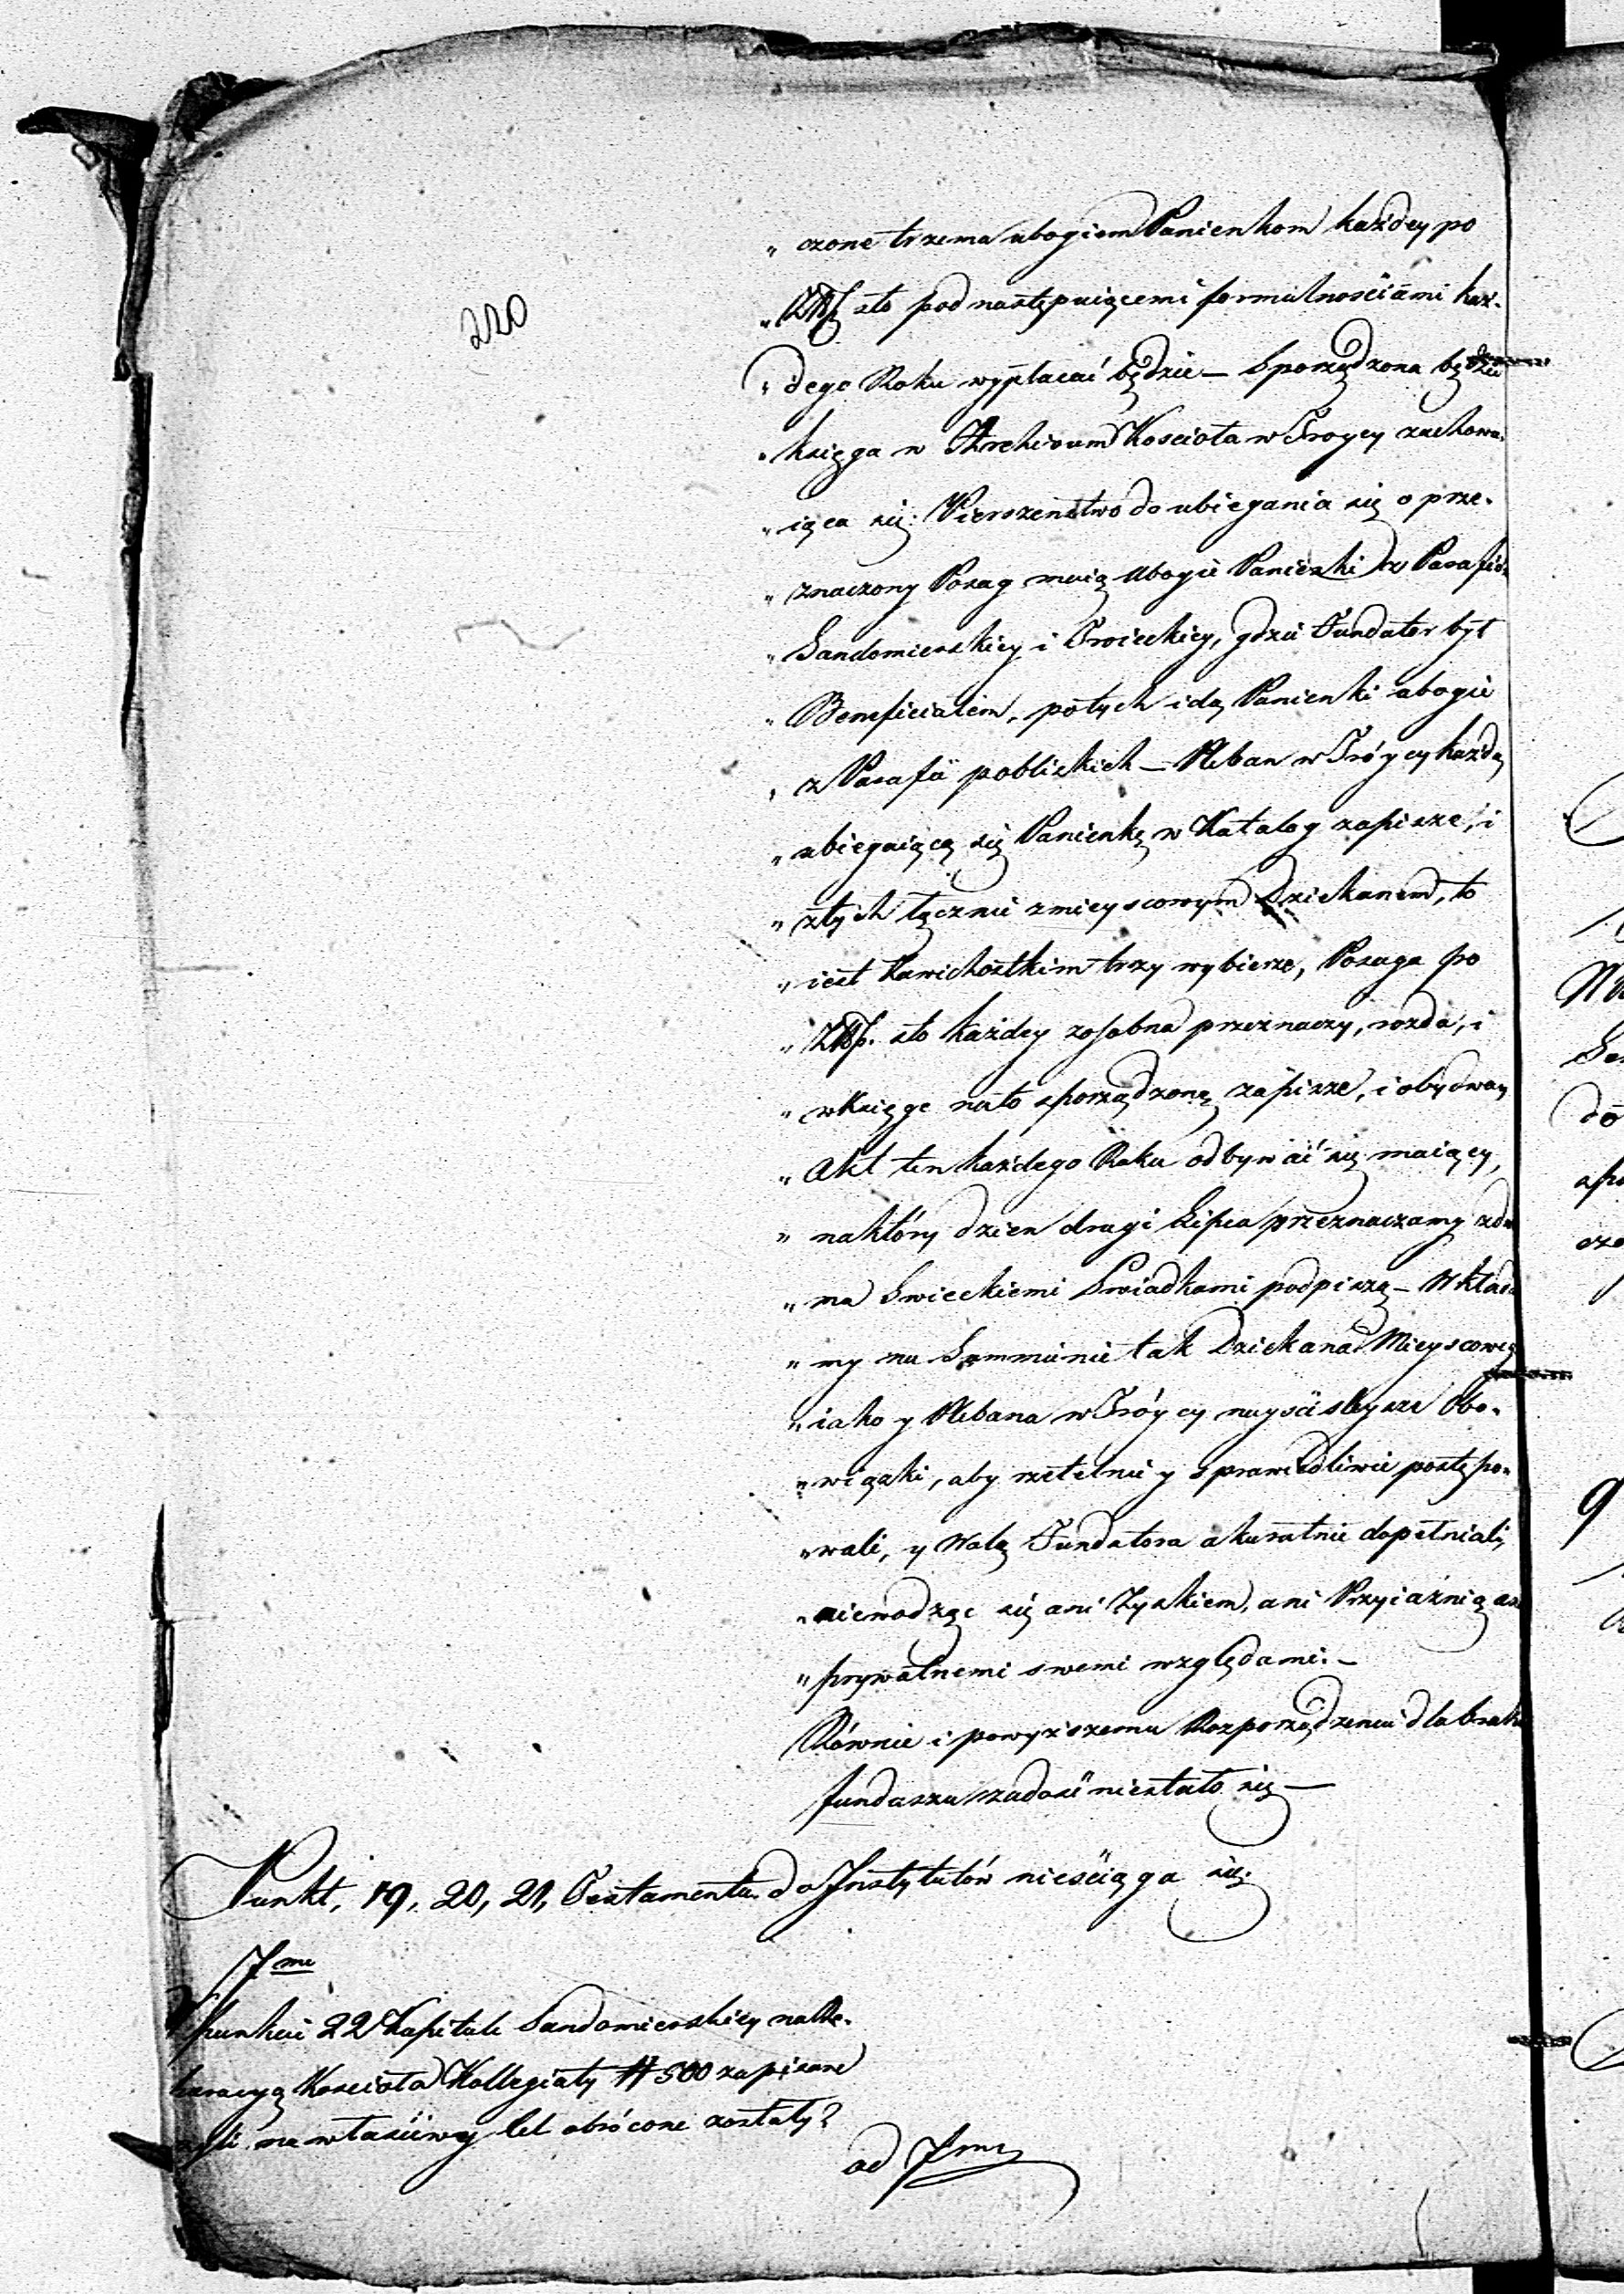 220
„ czone trzema ubogiem Panienkom każdey po
„ ZłPl sto pod następuiącemi formalnościami każ-
„ dego Roku wypłacać będzie — Sporządzona będzie
„ księga w Archivum Kościoła w Troycy zachowu-
„ iąca się. Pierszenstwo do ubiegania się o prze-
„ znaczony Posag maią ubogie Panienki w Parafii
„ Sandomierskiey i Troieckiey, gdzie Fundator był
„ Beneficiatem, po tych idą Panienki ubogie
„ z Parafii poblizkich — Pleban w Tróycy każdą
„ ubiegaiącą się Panienkę w Katalog zapisze, i
„ z tych łącznie z mieyscowym Dziekanem, to
„ iest Zawichostkim trzy wybierze, Posaga po
„ ZłPl. sto każdey zosobna przeznaczy, rozda, i
„ w Księge na to sporządzoną zapisze, i obydway
„ Akt ten każdego Roku odbywać się maiący,
„ na który dzien drugi Lipca przeznaczamy z dwo
„ ma Swieckiemi Swiadkami podpiszą — Wkłada
„ my na Summienie tak Dziekana Mieyscowego
„ iako y Plebana w Tróycy nayściśleysze Obo-
„ wiązki, aby rzetelnie y sprawiedliwie postępo-
„ wali, y Wolą Fundatora akuratnie dopełniali,
„ niewodząc się ani Zyskiem, ani Przyiaźnią ani
„ prywatnemi swemi względami. —
Równie i powyższemu Rozporządzeniu dla braku
funduszu zadosić niestało się —
Punkt, 19, 20, 21, Testamentu do Instytutów nieściąga się.
7me
W punkcie 22 Kapitule Sandomierskiey na Re-
paracyą Kościoła Kollegiaty # 500 zapisane
czyli na właściwy Cel obrócone zostały?
ad 7me